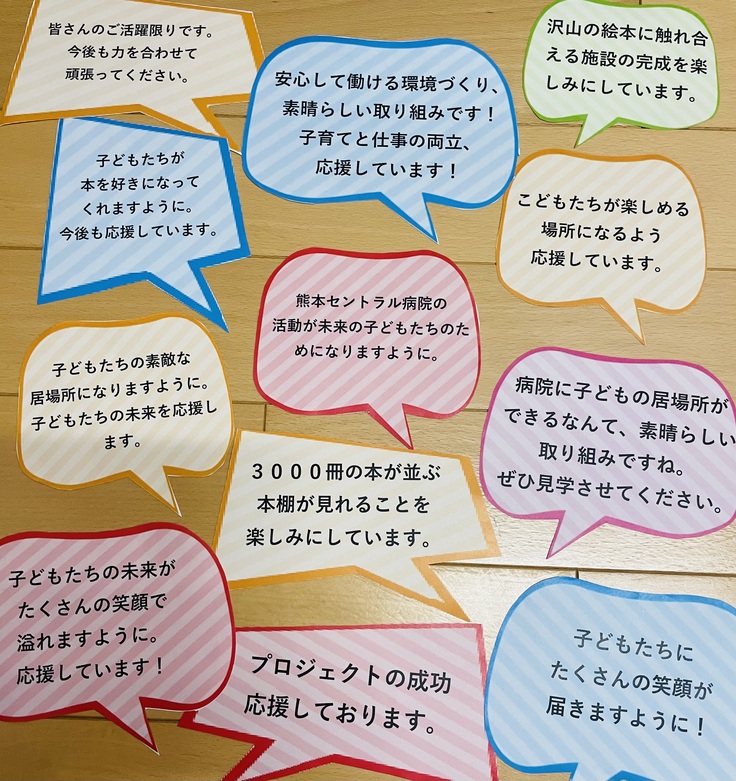 皆さんのご活躍限りです。
今後も力を合わせて
頑張ってください。
安心して働ける環境づくり、
素晴らしい取り組みです！
子育てと仕事の両立、
応援しています！
沢山の絵本に触れ合
える施設の完成を楽
しみにしています。
子どもたちが
本を好きになって
くれますように。
今後も応援しています。
こどもたちが楽しめる
場所になるよう
応援しています。
熊本セントラル病院の
活動が未来の子どもたちのた
めになりますように。
子どもたちの素敵な
居場所になりますように。
子どもたちの未来を応援し
ます。
病院に子どもの居場所が
できるなんて、素晴らしい
取り組みですね。
ぜひ見学させてください。
３０００冊の本が並ぶ
本棚が見れることを
楽しみにしています。
子どもたちの未来が
たくさんの笑顔で
溢れますように。
応援しています！
プロジェクトの成功
応援しております。
子どもたちに
たくさんの笑顔が
届きますように！